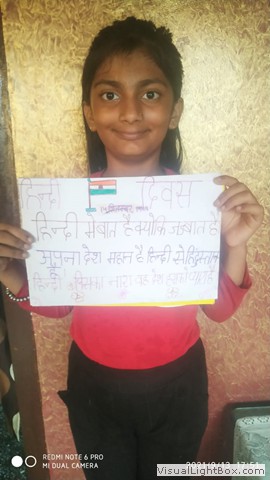 हिन्दी दिवस
हिन्दी मे बात है क्योकि जज्बात है
अपना देश महान है हिन्दी से हिन्दुस्तान
हिन्दी नारा वह देश
REDMI NOTE 6 PRO
MI DUAL CAMERA
VisualLightBox.com